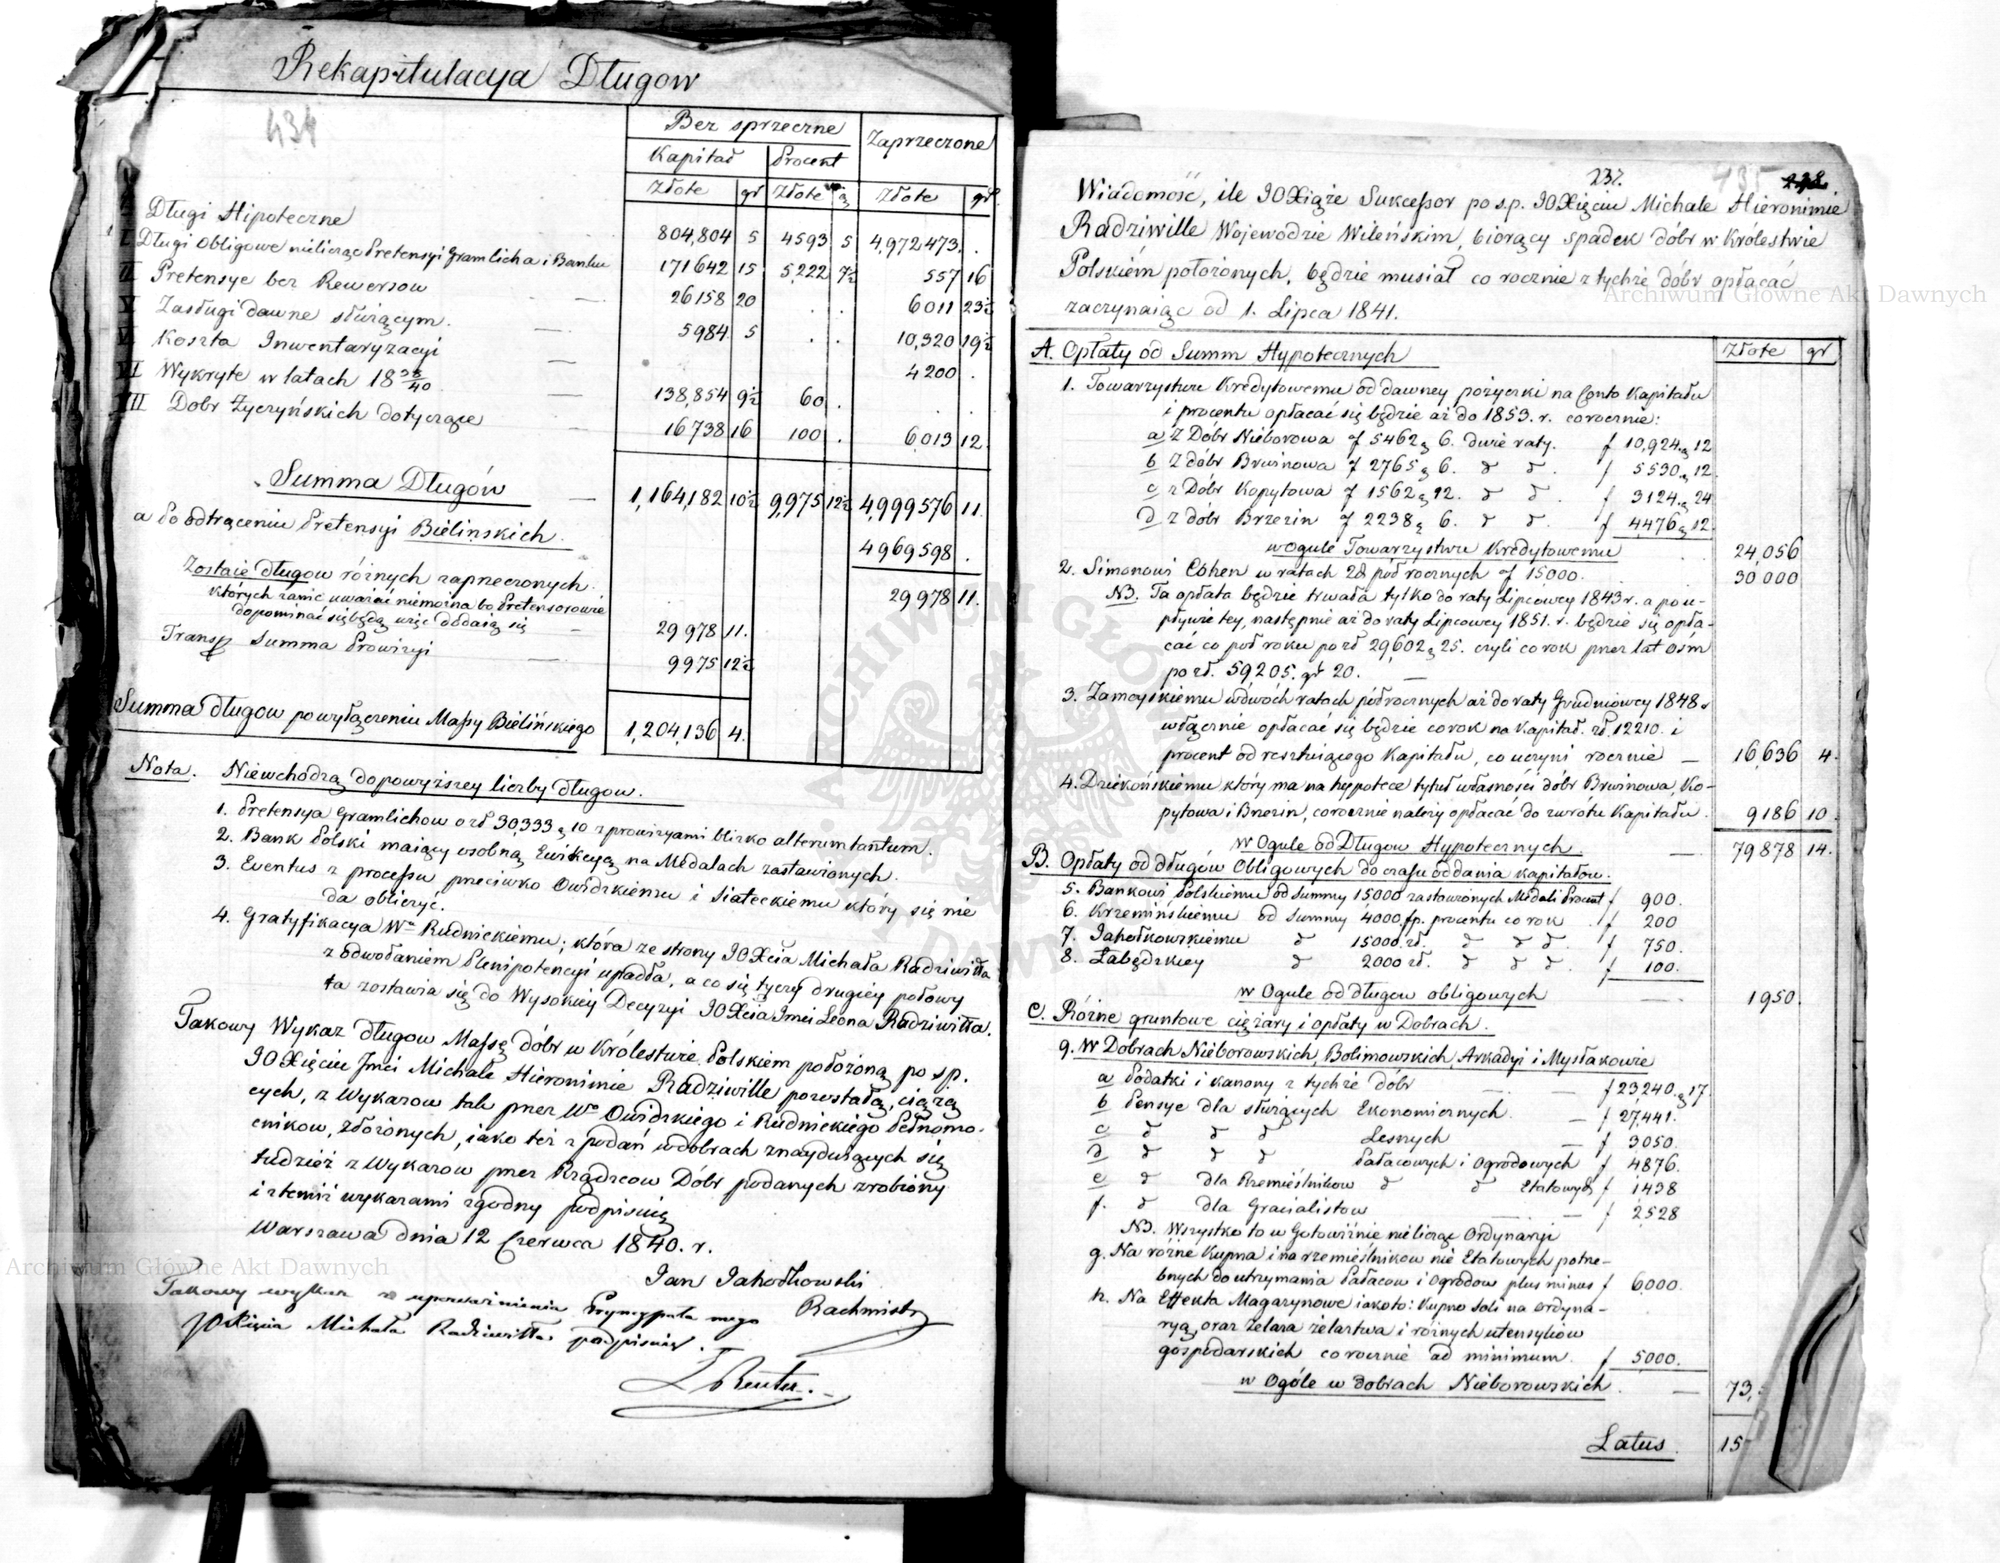 Rekapitulacya Długow
434
Bez sprzeczne
Zaprzeczone
Kapitał
Procent
Złote gr Złote g Złote gr
Długi Hipoteczne 804,804 5 4593 5 4,972,473 .
Długi obligowe nielicząc Pretensyi Gramlicha i Banku 171642 15 5,222 7½ 557 16
Pretensye bez Rewersow 26158 20 . . 6011 23½
V Zasługi dawne służącym. 5984 5 . . 10,320 19½
VI Koszta Inwentaryzacyi 4200 .
VII Wykryte w latach 18 38/40 138,854 9½ 60 . . .
VIII Dobr Życzyńskich dotyczące 16738 16 100 . 6,013 12.
Summa Długów 1,164,182 10½ 9,975 12½ 4,999,576 11.
a po odtrąceniu Pretensyi Bielinskich. 4969,598 .
Zostaie długow różnych zaprzeczonych. 29978 11.
których zanic uważać niemożna bo Pretensorowie
dopominać się będą więc dodaią się 29978 11.
Transp Summa Prowizyi 9975 12½
Summa długow po wyłączeniu Massy Bielińskiego 1,204,136 4.
Nota. Niewchodzą do powyższey liczby długow.
1. Pretensya Gramlichow o zł 30,333 g 10 z prowizyami blizko alterum tantum.
2. Bank Polski maiący osobną Ewikcyą na Medalach zastawionych.
3. Eventus z processu przeciwko Owidzkiemu i Siateckiemu który się nie
da obliczyć.
4. Gratyfikacya Wu Rudnickiemu; która ze strony JOXcia Michała Radziwiłła
z odwołaniem Plenipotencyi upadła, a co się tyczy drugiéy połowy
ta zostawia się do Wysokiéy Decyzyi JOXcia Jmci Leona Radziwiłła.
Takowy Wykaz długow Massę dóbr w Królestwie Polskiem położoną po sp.
JOXięciu Jmci Michale Hieronimie Radziwille pozostałą, ciążą
cych, z Wykazow tak przez Wo Owidzkiego i Rudnickiego Pełnomo-
cnikow, złożonych, iako też z podań w dobrach znayduiących się
tudzież z Wykazow przez Rządzcow Dóbr podanych zrobiony
i z temiż wykazami zgodny podpisuię
Warszawa dnia 12 Czerwca 1840. r.
Jan Jahołkowski
Rachmistrz
Takowy wykaz z upoważnienia Pryncypała mego
JO Xięcia Michała Radziwiłła podpisuię.
237.
435
Wiadomość, ile JOXiąże Sukcessor po sp. JOXięciu Michale Hieronimie
Radziwille Wojewodzie Wileńskim, biorący spadek dóbr w Królestwie
Polskiém położonych, będzie musiał corocznie z tychże dóbr opłacać
zaczynaiąc od 1. Lipca 1841.
A. Opłaty od Summ Hypotecznych Złote gr
1. Towarzystwu Kredytowemu od dawney pożyczki na Conto Kapitału
i procentu opłacać się będzie aż do 1853. r. corocznie:
a Z Dóbr Nieborowa f 5462 g 6. dwie raty. f 10,924 g 12
b Z dóbr Brwinowa f 2765 g 6. d d. f 5530 g 12.
c z Dóbr Kopytowa f 1562 g 12. d d. f 3124 g 24
d z dóbr Brzezin f 2238 g 6. d d. f 4476 g 12.
w Ogule Towarzystwu Kredytowemu 24,056
2. Simonowi Cohen w ratach 2ch pół rocznych f 15000. 30,000
NB. Ta opłata będzie trwała tylko do raty Lipcowey 1843 r. a po u-
pływie tey, następnie aż do raty Lipcowey 1851. r. będzie się opła-
cać co pół roku po zł 29,602 g 25. czyli co rok przez lat ośm
po zł. 59205. gr 20.
3. Zamoyskiemu w dwóch ratach półrocznych aż do raty Grudniowey 1848 r
włącznie opłacać się będzie co rok na Kapitał. zł. 12210. i
procent od resztuiącego Kapitału, co uczyni rocznie 16,636 4.
4. Dziekońskiemu który ma na hypotece tytuł własności dóbr Brwinowa, Ko-
pytowa i Brzezin, corocznie należy opłacać do zwrótu Kapitału. 9186 10.
w Ogule od Długow Hypotecznych. 79878 14.
B. Opłaty od długów Obligowych do czasu oddania kapitałów.
5. Bankowi Polskiemu od Summy 15000 zastawionych Medali Procent f 900.
6. Krzemińskiemu od Summy 4000 fp. procentu co rok f 200
7. Jahołkowskiemu d 15000. zł. d d d. f 750.
8. Łabędzkiey d 2000 zł. d d d. f 100.
w Ogule od długow obligowych 1950.
C. Różne gruntowe ciężary i opłaty w Dobrach.
9. w Dobrach Nieborowskich, Bolimowskich, Arkadyi i Mysłakowie
a Podatki i kanony z tychże dóbr f 23,240 g 17.
b Pensye dla służących Ekonomicznych. f 27,441.
c d d d Lesnych f 3050.
d d d d Pałacowych i Ogrodowych f 4876.
e d dla Rzemieślnikow d d Etatowych f 1438
f. d dla Gracialistow f 2528
NB. Wszystko to w Gotowiźnie nielicząc Ordynaryi
g. Na różne Kupna i na rzemieślnikow nie Etatowych potrze-
bnych do utrzymania Pałacow i Ogrodow plus minus f 6,000.
h. Na Effekta Magazynowe iako to: Kupno Soli na ordyna-
ryą, oraz żelaza żelaztwa i różnych utensyliów
gospodarskich corocznie ad minimum. f 5000.
w Ogóle w dobrach Nieborowskich. 73,
Latus. 15
Archiwum Główne Akt Dawnych
Archiwum Główne Akt Dawnych
ARCHIWUM GŁÓWNE AKT DAWNYCH